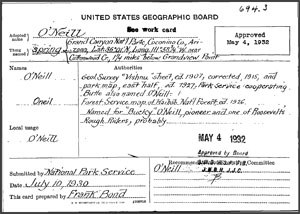 694.3
UNITED STATES GEOGRAPHIC BOARD
Use work card
Adopted name O'Neill
Approved
MAY 4, 1932
Grand Canyon Nat'l Park, Coconino Co., Ari-
spring
Cottonwood Cr., miles below Grandview Point
Names
Authorities
O'Neill Geol. Survey "Vishnu" sheet, ed. 1907, corrected, 1915, and
park map, east half, ed. 1927, Park Service cooperating.
Butte also named O'Neill:
Oneil Forest Service map of Nat'l Forest, ed. 1926.
Named for "Bucky" O'Neill, pioneer and one of Roosevelt's
Rough Riders, probably.
Local usage
O'Neill
MAY 4 1932
Approved by Board
Recommended Committee
O'Neill J.J.C.
Submitted by National Park Service
Date July 10, 1930
This card prepared by Frank Bond